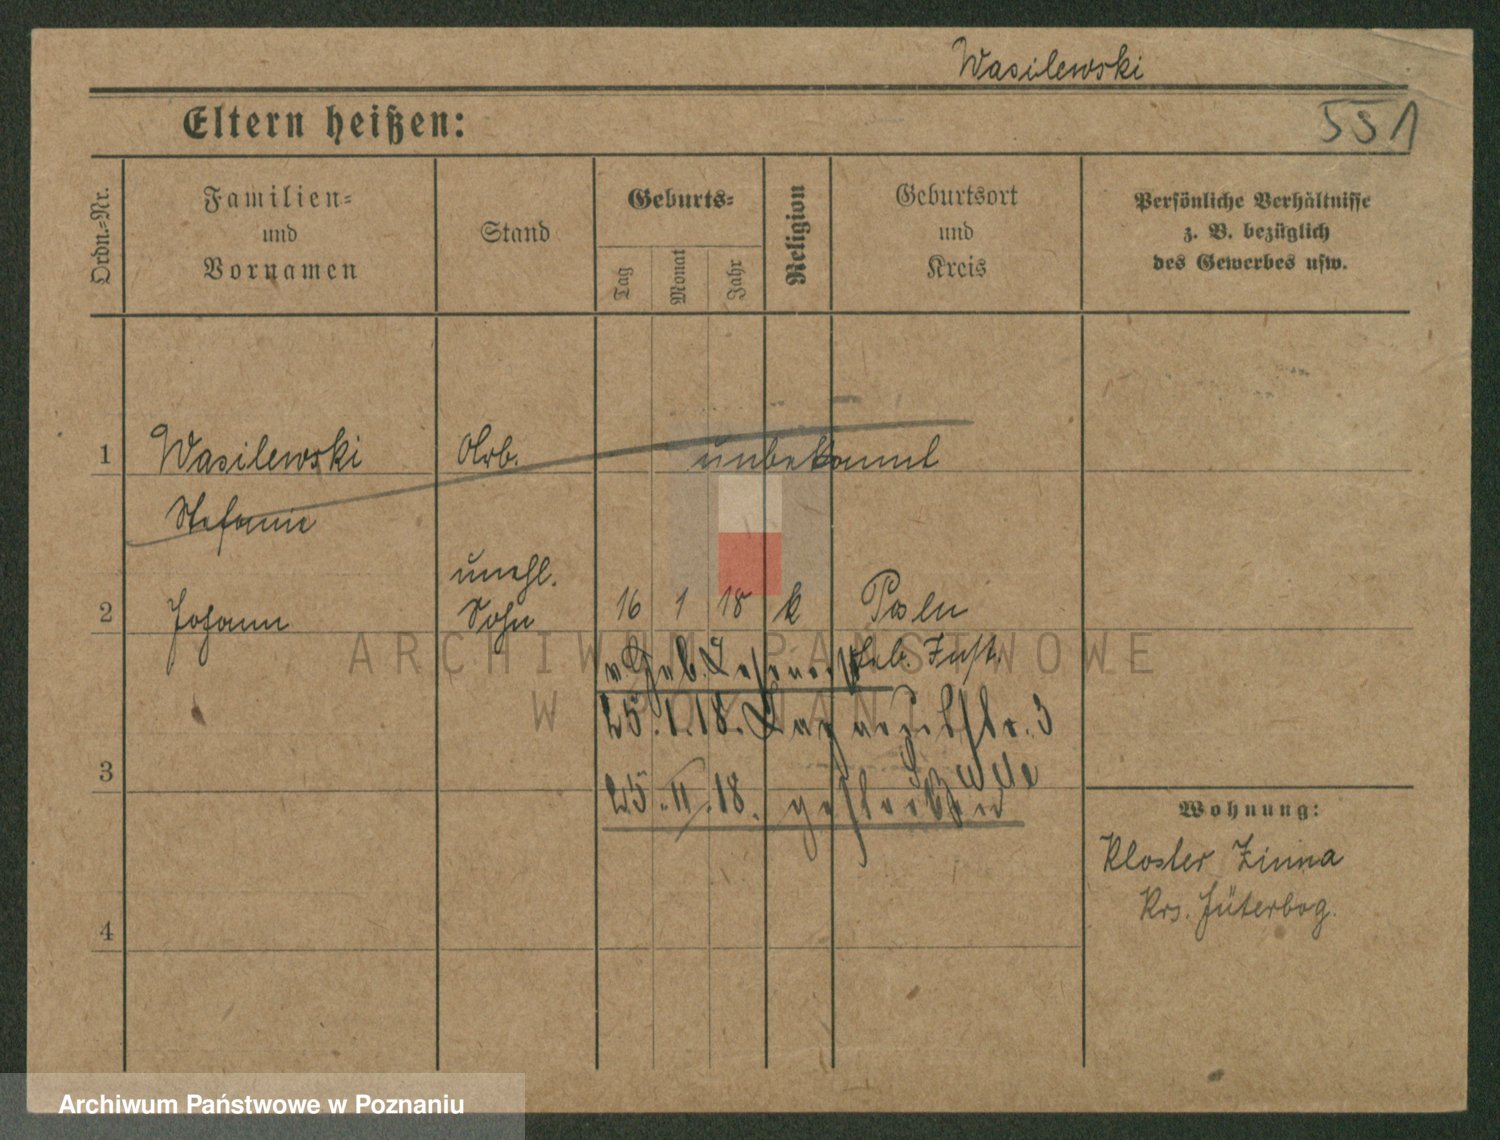 Wasilewski
551
Eltern heißen:
Ordn.=Nr.
Familien=
und
Vornamen
Stand
Geburts=
Tag
Monat
Jahr
Religion
Geburtsort
und
Kreis
Persönliche Verhältnisse
z. B. bezüglich
des Gewerbes usw.
1 Wasilewski Arb. unbekannt
Stefanie
unehl.
2 Johann Sohn 16 1 18 k Posen
v. Geb. Inst.
25.1.18. 3
3
25.II.18. gestorben
Wohnung:
Kloster Zinna
Krs. Jüterbog.
4
ARCHIWUM PAŃSTWOWE
W POZNANIU
Archiwum Państwowe w Poznaniu